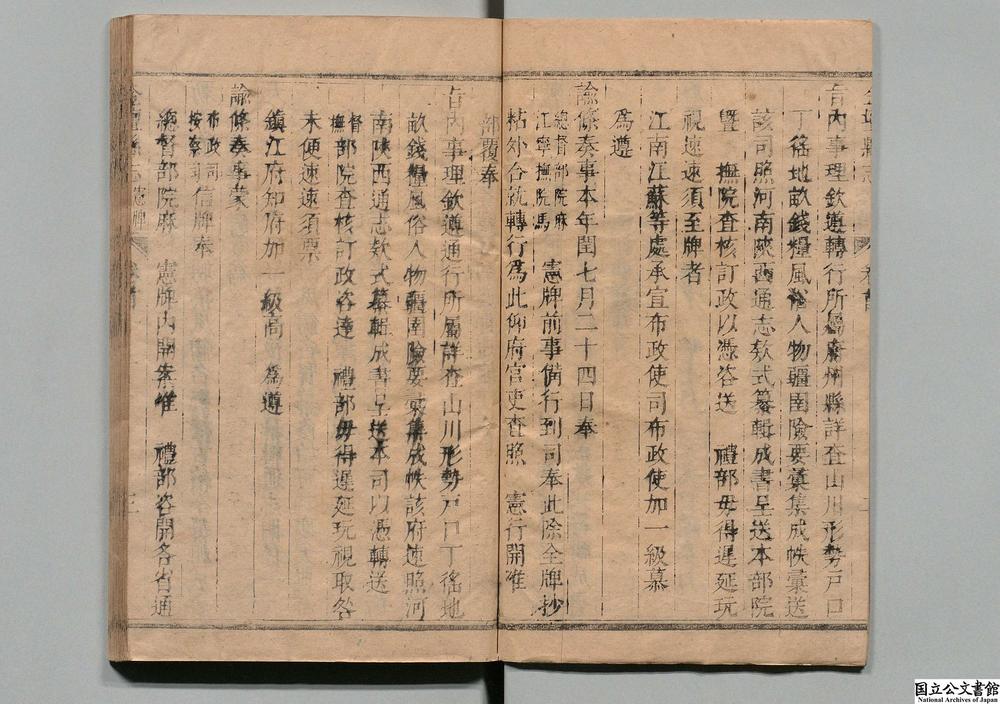 旨內事理欽遵轉行所屬府州縣詳查山川形勢戶口
丁徭地畝錢糧風俗人物疆圉險要彙集成帙彙送
該司照河南陝西通志欵式纂輯成書呈送本部院
曁　撫院查核訂政以憑咨送　禮部毋得遲延玩
視速速須至牌者
江南江蘇等處承宣布政使司布政使加一級慕
為遵
諭條奏事本年閏七月二十四日奉
總督部院麻
江寧撫院馬　憲牌前事備行到司奉此除全牌抄
粘外合就轉行為此仰府官吏查照　憲行開准
部覆奉
旨內事理欽遵通行所屬詳查山川形勢戶口丁徭地
畝錢糧風俗人物疆圉險要彙集成帙該府速照河
南陝西通志欵式纂輯成書呈送本司以憑轉送
督
撫部院查核訂政咨達　禮部毋得遲延玩視取咎
未便速速須票
鎮江府知府加一級高　為遵
諭條奏事蒙
布政司
按察司信牌奉
總督部院麻　憲牌內開案准　禮部咨開各省通
国立公文書館
National Archives of Japan